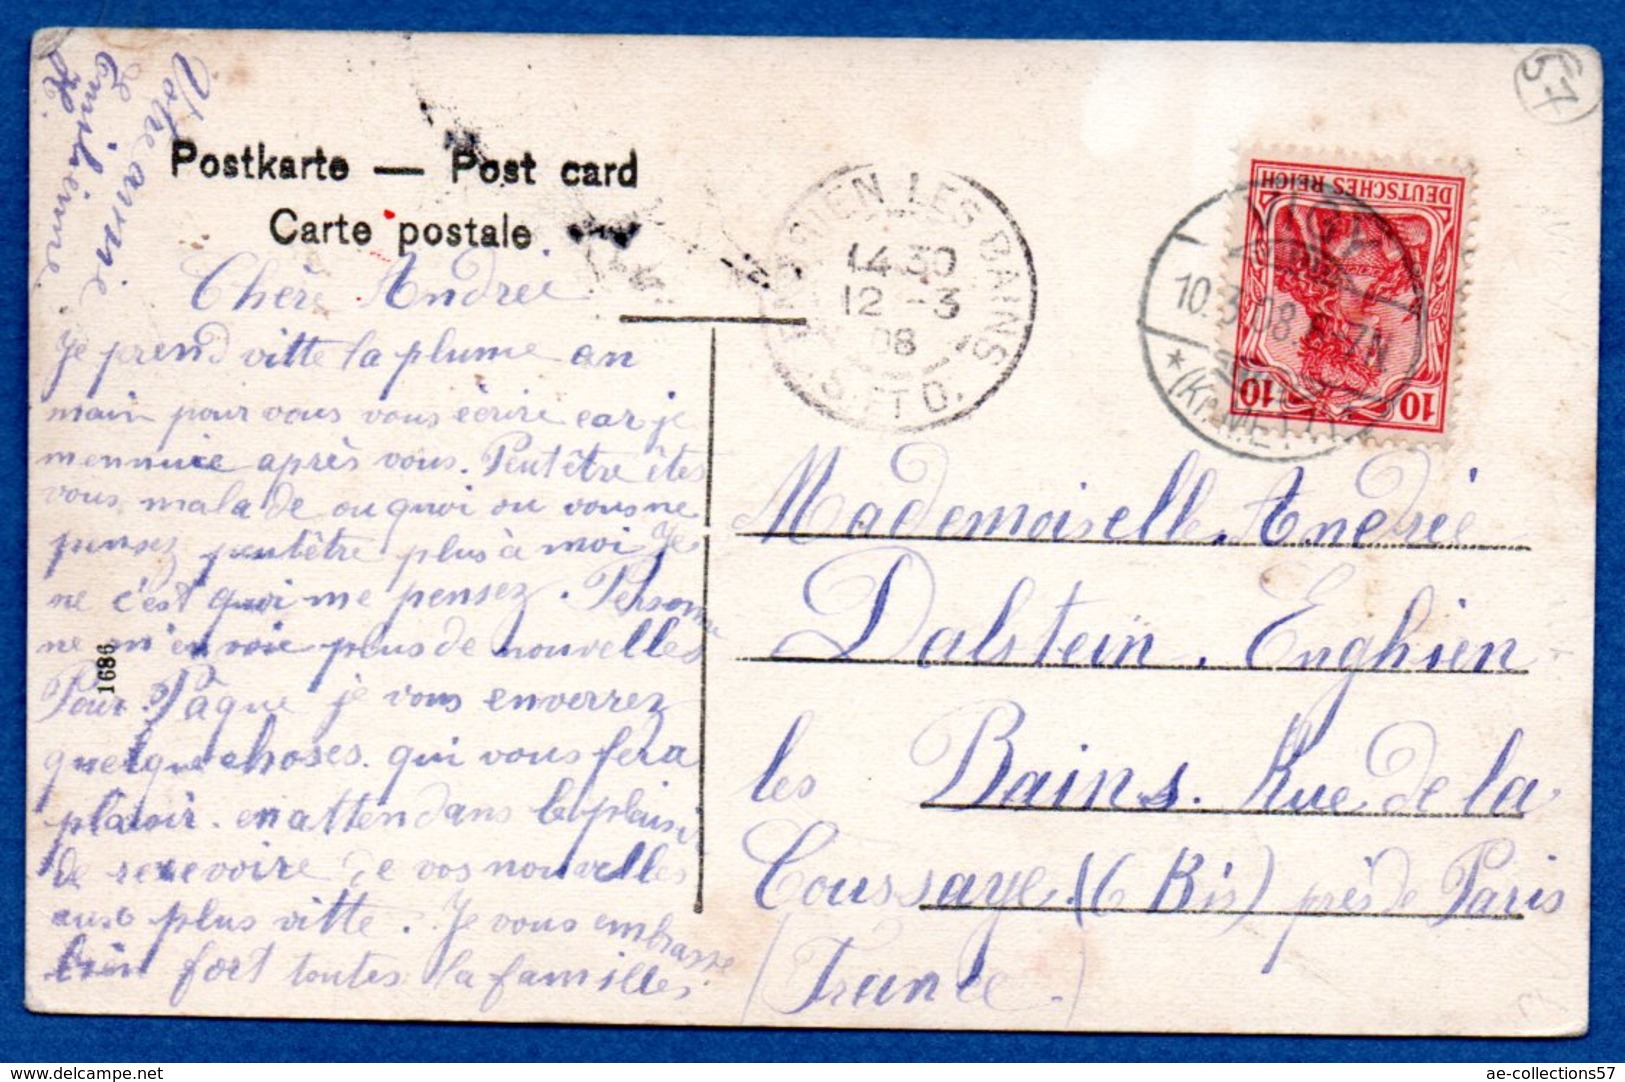 Postkarte — Post card
Carte postale
Chère Andrée
Je prend vitte la plume an
main pour vous vous écrire car je
mennuie après vous. Peutêtre êtes
vous malade ou quoi ou vous ne
pensez peutêtre plus à moi Je
ne c'est quoi me pensez. Personne
ne m'envoie plus de nouvelles
Pour Pâque je vous enverrez
quelque choses qui vous fera
plaisir. en attendans le plaisir
de recevoire de vos nouvelles
au plus vitte. Je vous embrasse
bien fort toutes la familles
Votre amie
Emilienne
H.
1686
ENGHIEN LES BAINS
14 30
12 -3
08
S. ET O.
DEUTSCHES REICH
10 10
VIGY
10.3.08. 6-7N
* (Kr. METZ)
57
Mademoiselle Andrée
Dalstein. Enghien
les Bains. Rue de la
Coussaye. (6 Bis) près de Paris
(France.)
ae-collections57
delcampe.net